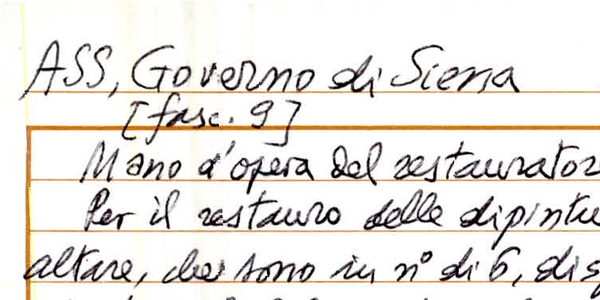 ASS, Governo di Siena
[fasc. 9]
Mano d'opera del restaurator
Per il restauro delle dipintu
altare, che sono in n° di 6, dis